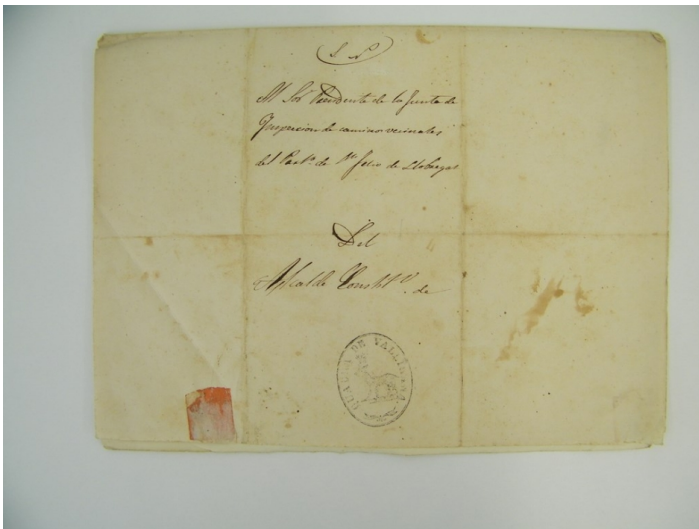 S. N.
Al Sor. Presidente de la Junta de
Ynspeccion de caminos vecinales
del Part.o de Sn. Feliu de Llobregat
Del
Alcalde Constl. de
DE VALLIRANA